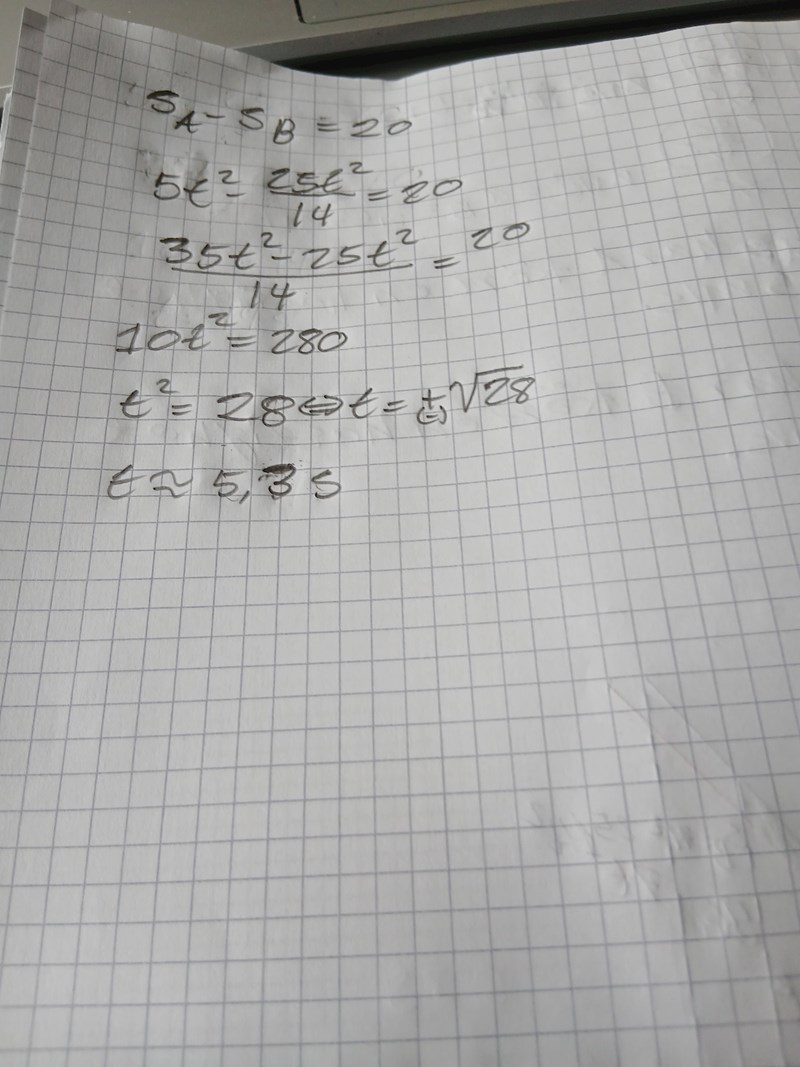 S_A - S_B = 20
5t² - 25t²/14 = 20
(35t² - 25t²)/14 = 20
10t² = 280
t² = 28 ⇔ t = ±(-)√28
t ≈ 5,3 s